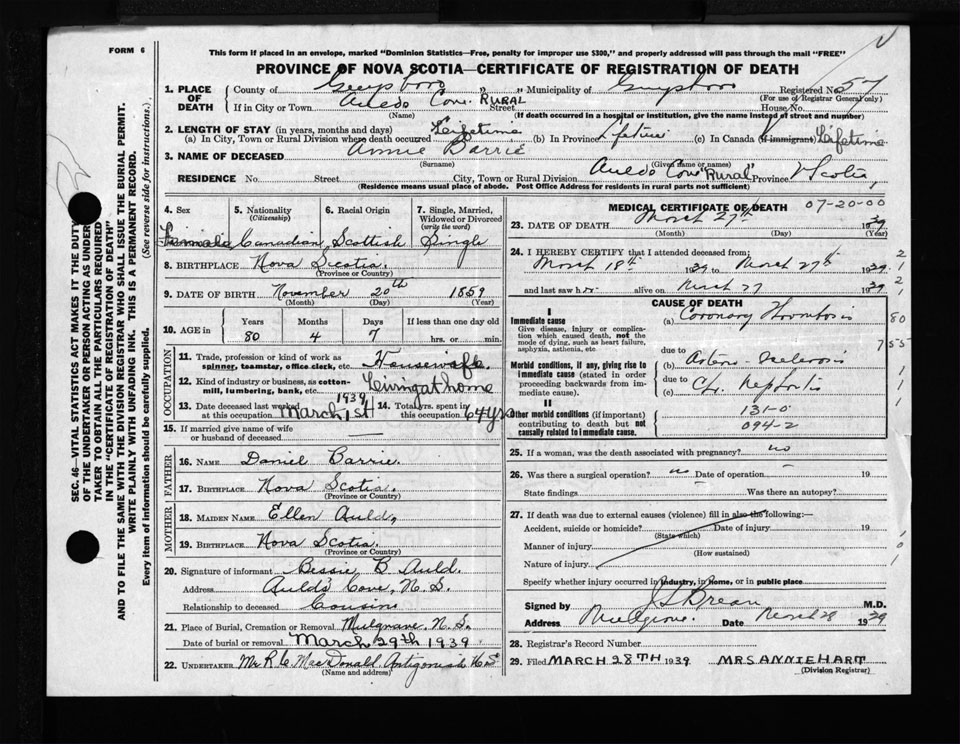 FORM 6
This form if placed in an envelope, marked "Dominion Statistics—Free, penalty for improper use $300," and properly addressed will pass through the mail "FREE"
PROVINCE OF NOVA SCOTIA—CERTIFICATE OF REGISTRATION OF DEATH
SEC. 46—VITAL STATISTICS ACT MAKES IT THE DUTY
OF THE UNDERTAKER OR PERSON ACTING AS UNDER
TAKER TO OBTAIN ALL THE PARTICULARS REQUIRED
IN THE "CERTIFICATE OF REGISTRATION OF DEATH"
AND TO FILE THE SAME WITH THE DIVISION REGISTRAR WHO SHALL ISSUE THE BURIAL PERMIT.
WRITE PLAINLY WITH UNFADING INK. THIS IS A PERMANENT RECORD.
Every item of information should be carefully supplied. (See reverse side for instructions.)
1. PLACE OF DEATH
County of Guysboro " " Municipality of Guysboro Registered No. 57
(For use of Registrar General only)
If in City or Town Aulds Cove RURAL Street House No.
(Name) (If death occurred in a hospital or institution, give the name instead of street and number)
2. LENGTH OF STAY (in years, months and days)
(a) In City, Town or Rural Division where death occurred Lifetime (b) In Province Lifetime (c) In Canada (if immigrant) Lifetime
3. NAME OF DECEASED Annie Barrie
(Surname) (Given name or names)
RESIDENCE No. Street City, Town or Rural Division Aulds Cove "Rural" Province N Scotia
(Residence means usual place of abode. Post Office Address for residents in rural parts not sufficient)
4. Sex Female
5. Nationality (Citizenship) Canadian
6. Racial Origin Scottish
7. Single, Married, Widowed or Divorced (write the word) Single
8. BIRTHPLACE Nova Scotia.
(Province or Country)
9. DATE OF BIRTH November 20th 1859
(Month) (Day) (Year)
10. AGE in Years Months Days If less than one day old
80 4 7 hrs. or min.
OCCUPATION
11. Trade, profession or kind of work as spinner, teamster, office clerk, etc. Housewife
12. Kind of industry or business, as cotton-mill, lumbering, bank, etc. Living at home
13. Date deceased last worked at this occupation March 1st 1939
14. Total yrs. spent in this occupation 64 yrs
15. If married give name of wife or husband of deceased —
FATHER
16. NAME Daniel Barrie.
17. BIRTHPLACE Nova Scotia
(Province or Country)
MOTHER
18. MAIDEN NAME Ellen Auld,
19. BIRTHPLACE Nova Scotia.
(Province or Country)
20. Signature of informant Bessie B. Auld.
Address Auld's Cove, N. S.
Relationship to deceased Cousin
21. Place of Burial, Cremation or Removal Mulgrave N. S.
Date of burial or removal March 29th 1939
22. UNDERTAKER Mr R. C. MacDonald Antigonish N.S.
(Name and address)
MEDICAL CERTIFICATE OF DEATH 07-20-00
23. DATE OF DEATH March 27th 1939
(Month) (Day) (Year)
24. I HEREBY CERTIFY that I attended deceased from:
March 18th 1939 to March 27th 1939
and last saw her alive on March 27 1939
CAUSE OF DEATH
I
Immediate cause
Give disease, injury or complication which caused death, not the mode of dying, such as heart failure, asphyxia, asthenia, etc.
(a) Coronary Thrombosis
due to
Morbid conditions, if any, giving rise to immediate cause (stated in order proceeding backwards from immediate cause)
(b) Arterio Sclerosis
due to
(c) Ch. Nephritis
II
Other morbid conditions (if important) contributing to death but not causally related to immediate cause.
131-0
094-2
25. If a woman, was the death associated with pregnancy? no
26. Was there a surgical operation? no Date of operation — 19
State findings — Was there an autopsy?
27. If death was due to external causes (violence) fill in also the following:—
Accident, suicide or homicide? Date of injury 19
(State which)
Manner of injury
(How sustained)
Nature of injury
Specify whether injury occurred in industry, in home, or in public place
Signed by M.D.
Address Mulgrave. Date March 28 1939
28. Registrar's Record Number
29. Filed MARCH 28TH 1939 MRS ANNIE HART
(Division Registrar)